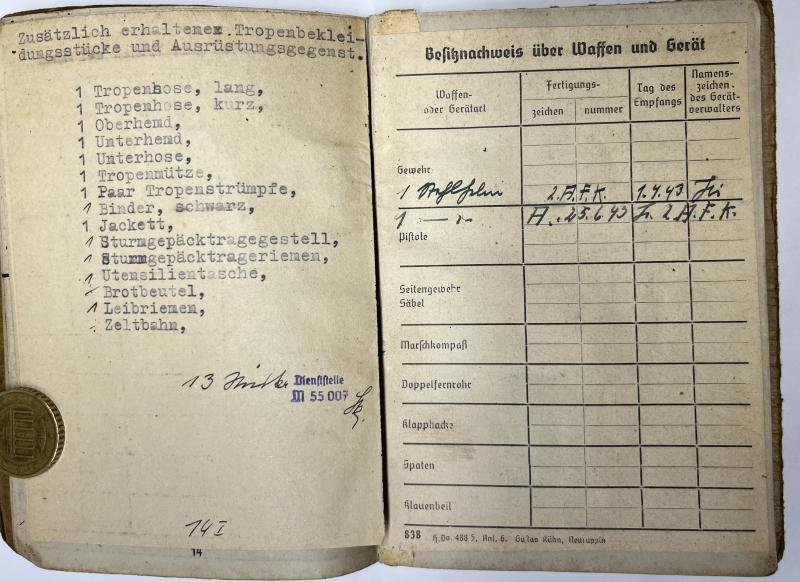 Zusätzlich erhaltene Tropenbeklei-
dungsstücke und Ausrüstungsgegenst.
1 Tropenhose, lang,
1 Tropenhose, kurz,
1 Oberhemd,
1 Unterhemd,
1 Unterhose,
1 Tropenmütze,
1 Paar Tropenstrümpfe,
1 Binder, schwarz,
1 Jackett,
1 Sturmgepäcktragegestell,
1 Sturmgepäcktrageriemen,
1 Utensilientasche,
1 Brotbeutel,
1 Leibriemen,
1 Zeltbahn,
13
Dienststelle
M 55 007
14 I
14
Besitznachweis über Waffen und Gerät
Waffen- oder Gerätart
Fertigungs-
zeichen
nummer
Tag des Empfangs
Namens-zeichen des Gerät-verwalters
Gewehr
1 Stahlhelm 2.A.F.K. 1.4.43
1 — " — A. 25.6.43 2.A.F.K.
Pistole
Seitengewehr
Säbel
Marschkompaß
Doppelfernrohr
Klapphacke
Spaten
Klauenbeil
838 H.Dv. 488 5, Anl. 6. Gustav Kühn, Neuruppin